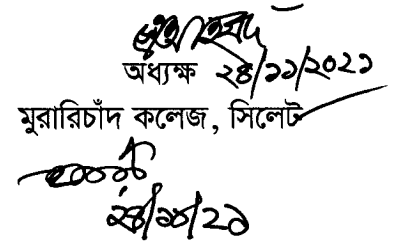 অধ্যক্ষ ২৪/১১/২০২১
মুরারিচাঁদ কলেজ, সিলেট
২৪/১১/২১